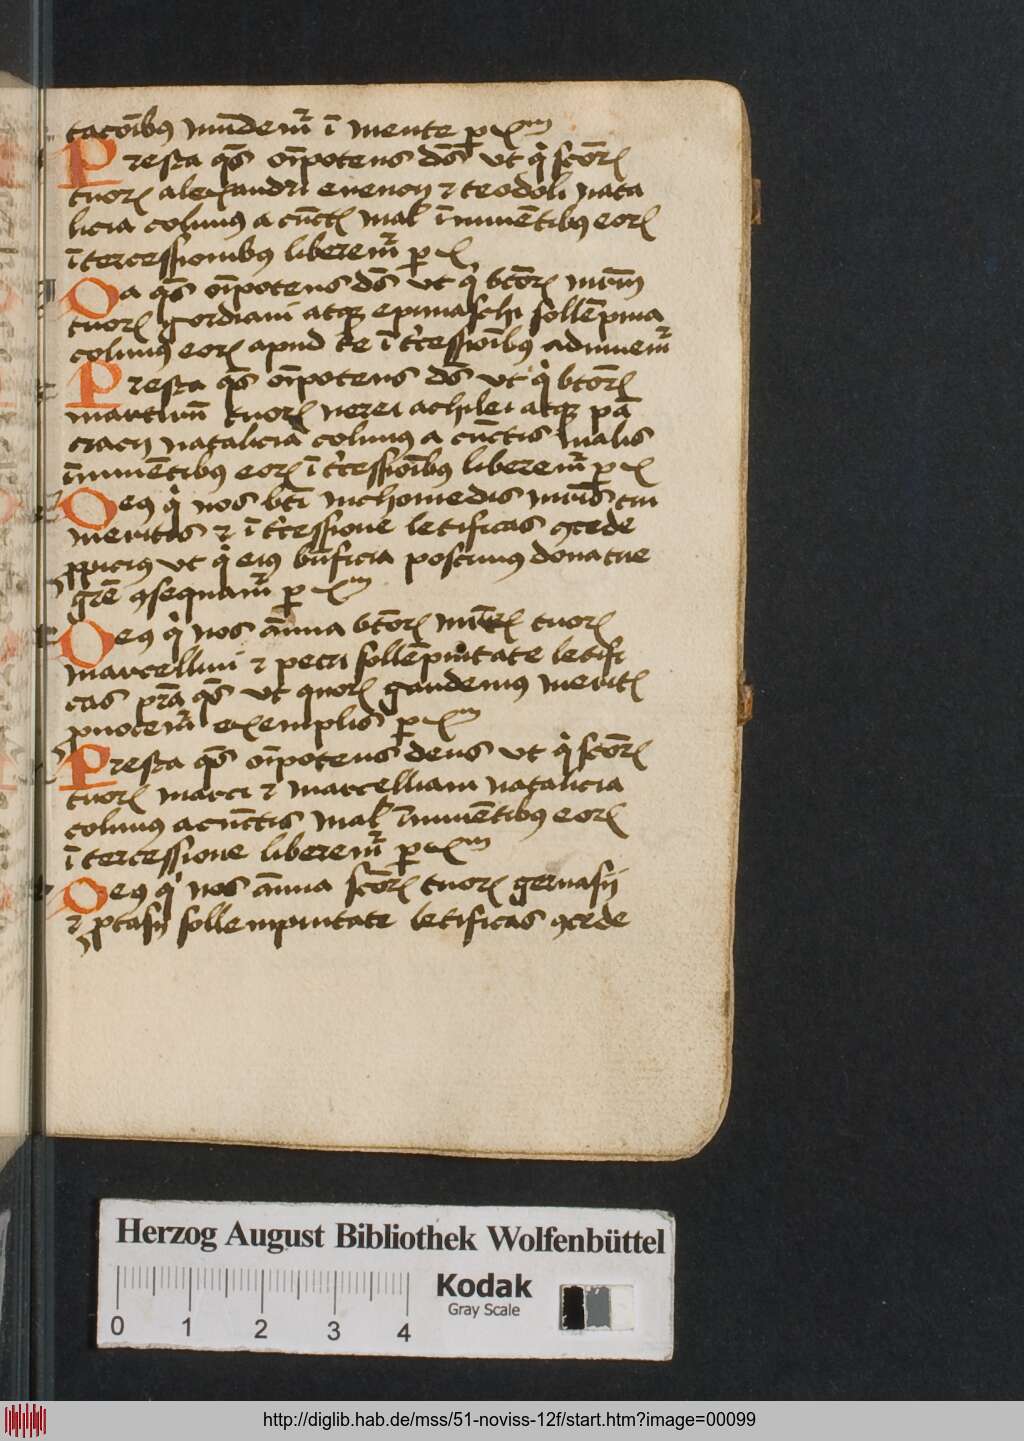 tacōibus mūdemr ī mente p xm
Presta qs oīpotens ds ut qi scōrꝝ
tuorꝝ alexandri evencij ⁊ teodoli nata
licia colimus a cūctꝭ mal īminētibus eorꝝ
ītercessionibus liberemr p x
Da qs oīpotens ds ut qi btōrꝝ mrm̄
tuorꝝ gordiani atqꝫ epimachi sollēpnia
colimus eorꝝ apud te ī tercessiōibus adiuuemr
Presta qs oīpotens ds ut qi btōrꝝ
martirū tuorꝝ nerei achilei atqꝫ pā
cracij natalicia colimus a cūctis malis
īminētibus eorꝝ ī tercessiōibus liberemr p x
Deus qi nos bti nichomedis mris tui
meritis ⁊ ī tercessione letificas ꝯcede
ꝓpicius ut qi eius bn̄ficia poscimus dona tue
grē ꝯsequamr p xm
Deus qi nos ānua btōrꝝ mrm̄ tuorꝝ
marcellini ⁊ petri sollēpnitate letifi
cas prā qs ut quorꝝ gaudemus meritꝭ
ꝓuocemr exemplis p xm
Presta qs oīpotens deus ut qi scōrꝝ
tuorꝝ marci ⁊ marcelliani natalicia
colimus a cūctis mal īminētibus eorꝝ
ī tercessione liberemr p xm
Deus qi nos ānua scōrꝝ tuorꝝ geruasij
⁊ ꝓtasij sollempnitate letificas ꝯcede
Herzog August Bibliothek Wolfenbüttel
Kodak
Gray Scale
0 1 2 3 4
http://diglib.hab.de/mss/51-noviss-12f/start.htm?image=00099